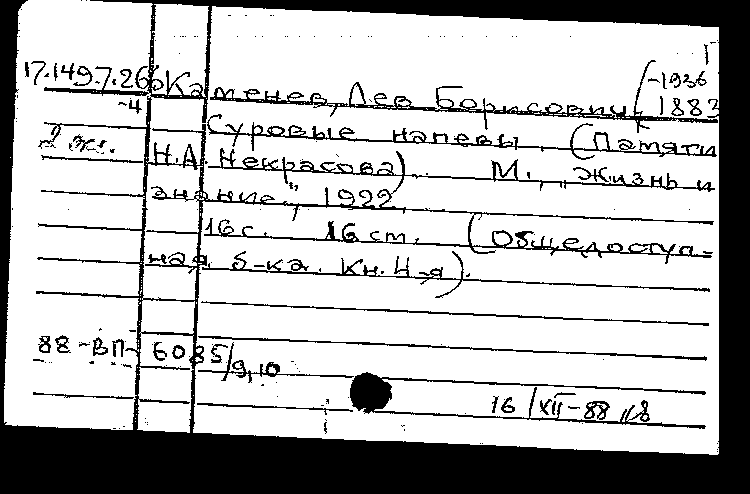 17.149.7.266 Каменев, Лев Борисович (-1936
-4 1883
Суровые напевы. (Памяти
2 эк. Н.А. Некрасова). М., "Жизнь и
знание", 1922.
16 с. 16 cm. (Общедоступ-
ная б-ка. Кн. 4-я).
88-ВП- 6085/9,10
16/XII-88